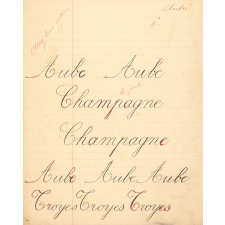 Aube Aube
Champagne
Champagne
Aube Aube Aube
Troyes Troyes Troyes